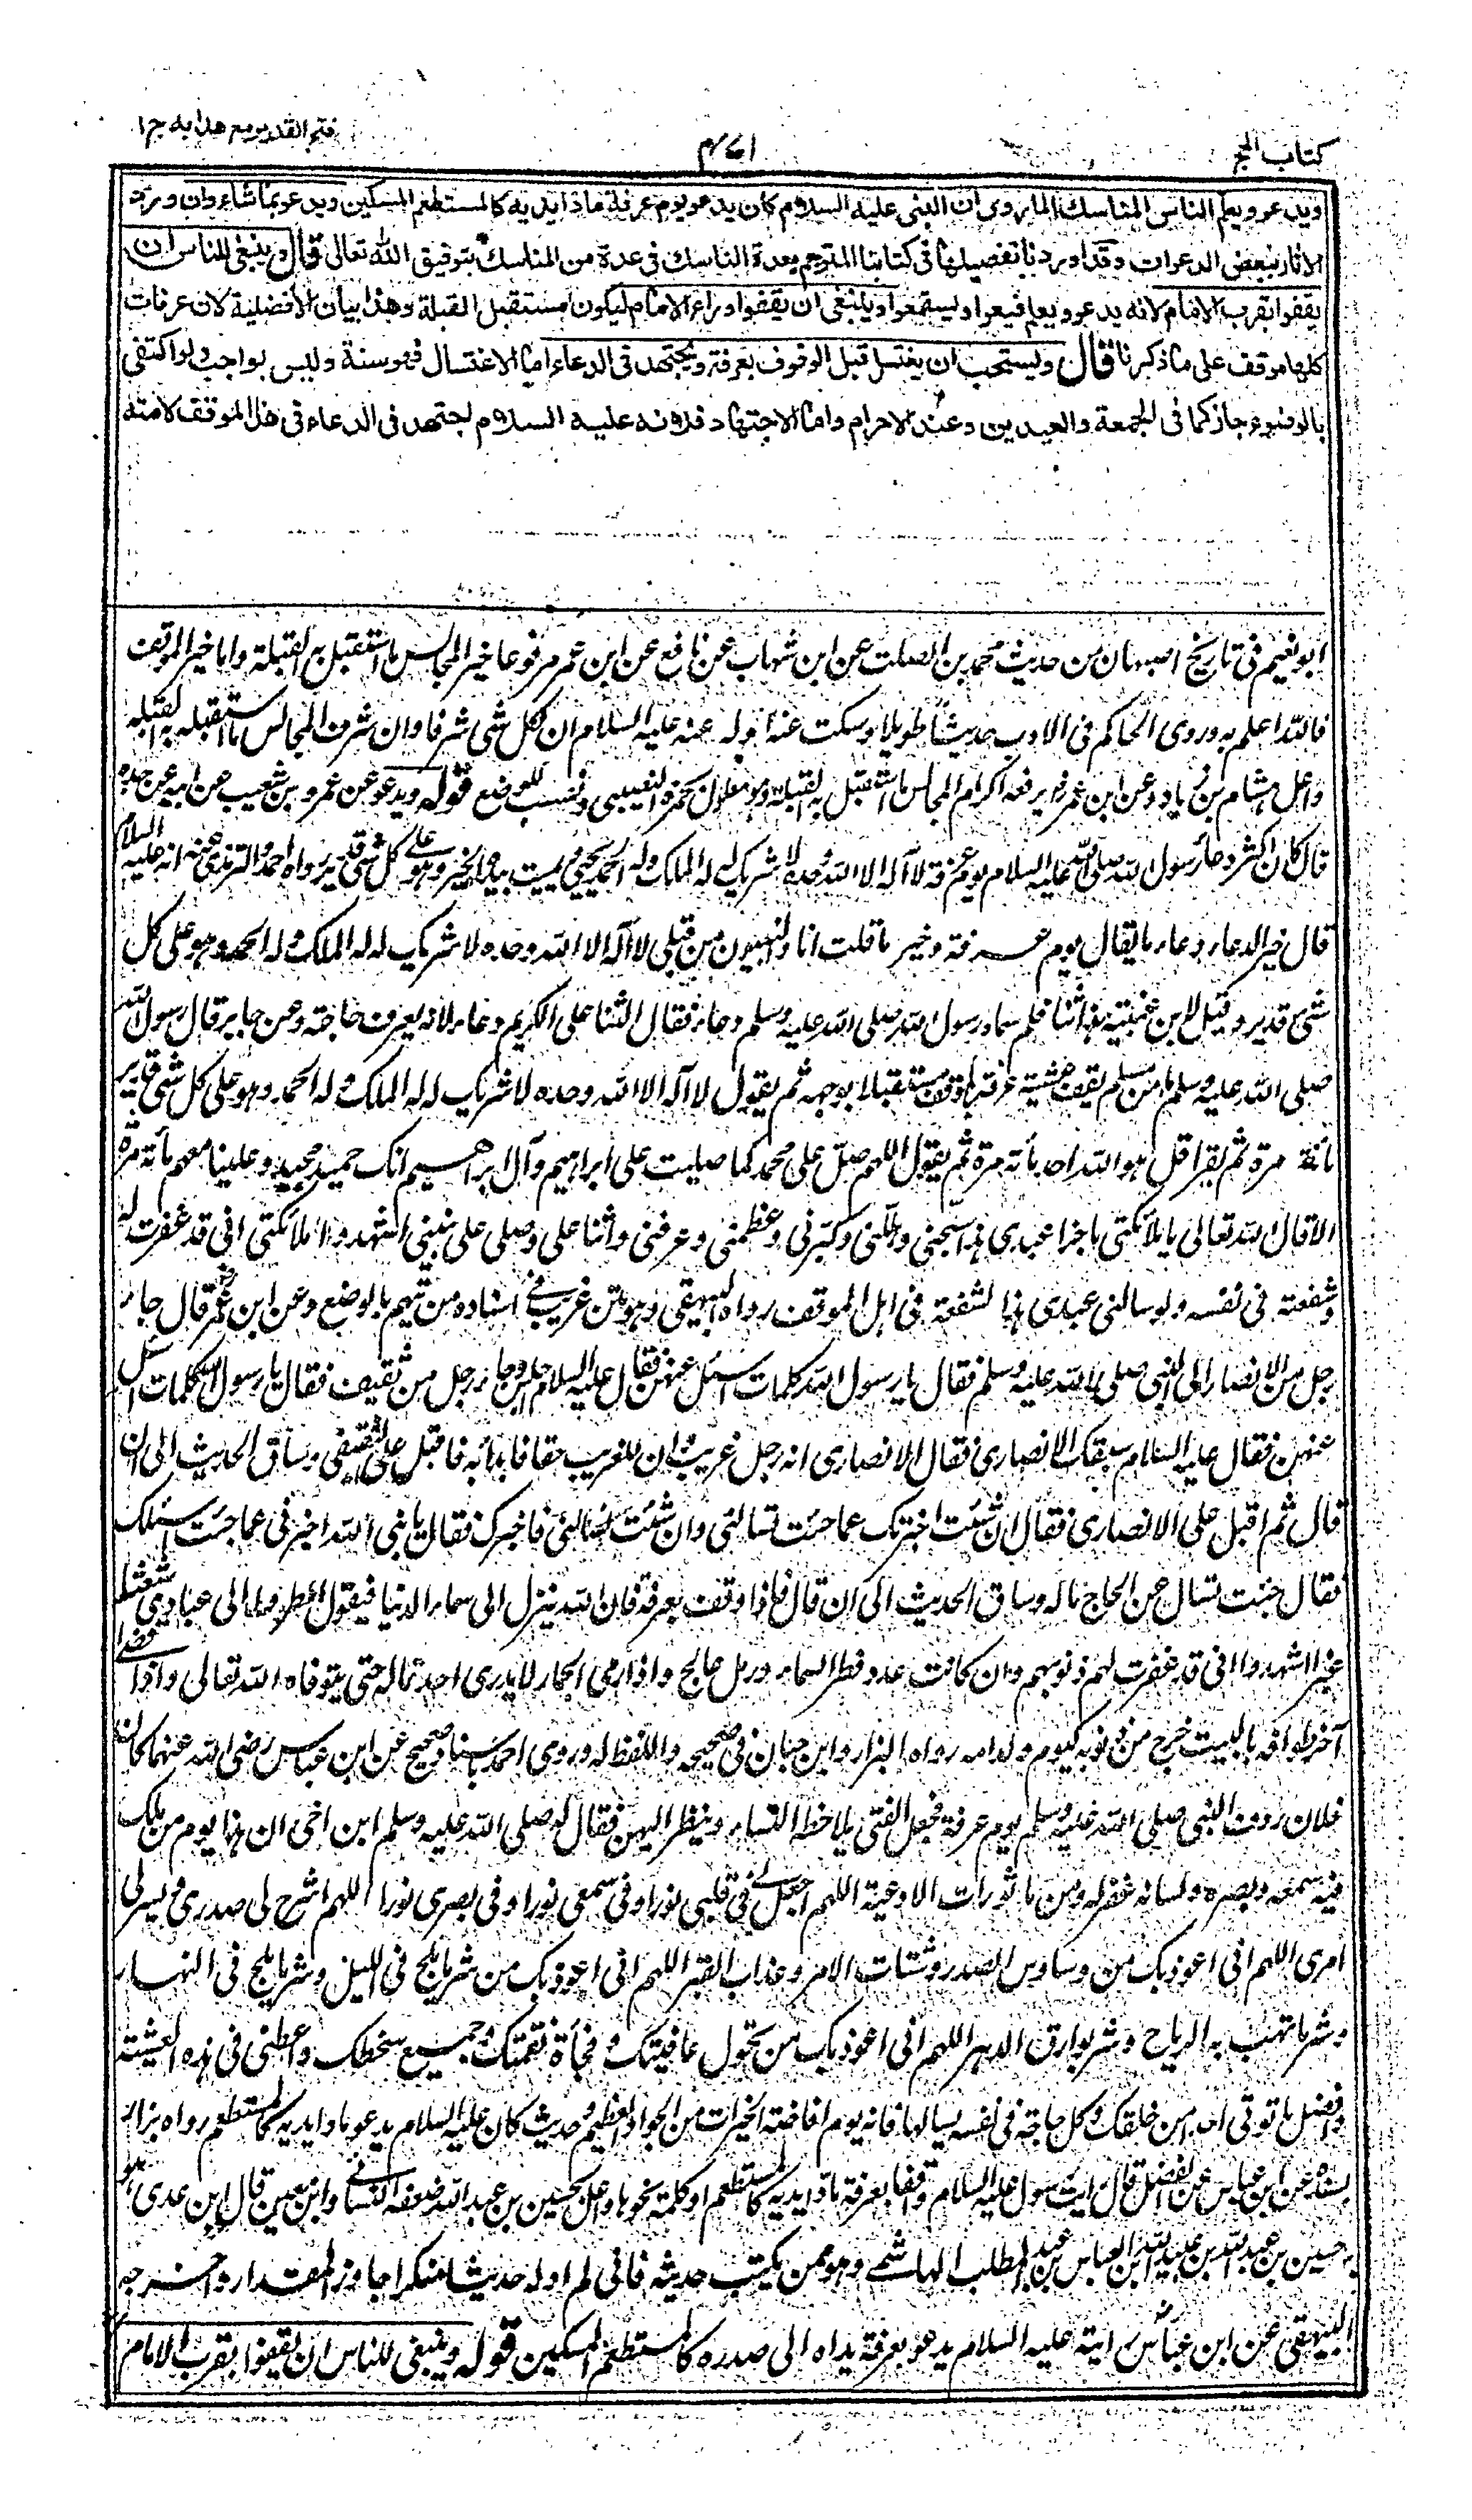 كتاب الحج
٤٧١
فتح القدير مع هدايه ج١
ويدعو ويعلم الناس المناسك لما روى ان النبى عليه السلام كان يدعو يوم عرفة مادا يديه كالمستطعم المسكين ويدعو بما شاء وان ورد
الاثار ببعض الدعوات وقد اوردنا تفصيلها فى كتابنا المترجم بعدة الناسك فى عدة من المناسك بتوفيق الله تعالى قال وينبغى للناس ان
يقفوا بقرب الامام لانه يدعو ويعلم فيعوا ويستمعوا وينبغى ان يقفوا وراء الامام ليكون مستقبل القبلة وهذا بيان الأفضلية لان عرفات
كلها موقف على ما ذكرنا قال ويستحب ان يغتسل قبل الوقوف بعرفة ويجتهد فى الدعاء اما الاغتسال فهو سنة وليس بواجب ولو اكتفى
بالوضوء جاز كما فى الجمعة والعيدين وعند الاحرام واما الاجتهاد فلانه عليه السلام اجتهد فى الدعاء فى هذا الموقف لامته
ابو نعيم فى تاريخ اصبهان من حديث محمد بن الصلت عن ابن شهاب عن نافع عن ابن عمر مرفوعا خير المجالس ما استقبل به القبلة واما خير المواقف
فالله اعلم به وروى الحاكم فى الادب حديثا طويلا وسكت عنه اوله عنه عليه السلام ان لكل شئ شرفا وان شرف المجالس ما استقبل به القبله
واعل بهشام بن زياد وعن ابن عمر يرفعه اكرام المجالس ما استقبل به القبلة وهو معلول بحمزة النصيبى ونسب للوضع قوله ويدعو عن عمرو بن شعيب عن ابيه عن جده
قال كان اكثر دعاء رسول الله صلى الله عليه السلام يوم عرفة لا اله الا الله وحده لا شريك له له الملك وله الحمد يحيى ويميت بيده الخير وهو على كل شئ قدير رواه احمد والترمذى عنه انه عليه السلام
قال خير الدعاء دعاء ما يقال يوم عرفة وخير ما قلت انا والنبيون من قبلى لا اله الا الله وحده لا شريك له له الملك وله الحمد وهو على كل
شئ قدير وقيل لابن عيينة هذا ثنا فلم سماه رسول الله صلى الله عليه وسلم دعاء فقال الثنا على الكريم دعاء لانه يعرف حاجته وعن جابر قال رسول الله
صلى الله عليه وسلم ما من مسلم يقف عشية عرفة بالموقف مستقبلا بوجهه ثم يقول لا اله الا الله وحده لا شريك له له الملك وله الحمد وهو على كل شئ قدير
مائة مرة ثم يقرا قل هو الله احد مأته مرة ثم يقول اللهم صل على محمد كما صليت على ابراهيم وآل ابراهيم انك حميد مجيد وعلينا معهم مأته مرة
الا قال الله تعالى يا ملائكتى ما جزاء عبدى هذا سبحنى وهللنى وكبرنى وعظمنى وعرفنى واثنا على وصلى على نبيى اشهدوا ملائكتى انى قد غفرت له
وشفعته فى نفسه ولو سالنى عبدى هذا لشفعته فى اهل الموقف رواه البيهقى وهو متن غريب فى اسناده من تهيم بالوضع وعن ابن عمر قال جاء
رجل من الانصار الى النبى صلى الله عليه وسلم فقال يا رسول الله كلمات اسئل عنهن فقال عليه السلام اجلس وجاء رجل من ثقيف فقال يا رسول الله كلمات اسئل
عنهن فقال عليه السلام سبقك الانصارى فقال الانصارى انه رجل غريب وان للغريب حقا فابدأ به فاقبل على الثقيفى وساق الحديث الى ان
قال ثم اقبل على الانصارى فقال ان شئت اخبرتك عما جئت تسالنى وان شئت تسالنى فاخبرك فقال يا نبى الله اخبرنى عما جئت اسئلك
فقال جئت تسال عن الحاج ماله وساق الحديث الى ان قال فاذا وقف بعرفة فان الله ينزل الى سماء الدنيا فيقول انظروا الى عبادى شعثا
غبرا اشهدوا انى قد غفرت لهم ذنوبهم وان كانت عدد قطر السماء ورمل عالج واذا رمى الجمار لا يدرى احد ماله حتى يتوفاه الله تعالى واذا قضى
آخر طوافه بالبيت خرج من ذنوبه كيوم ولدته امه رواه البزار وابن حبان فى صحيحه واللفظ له وروى احمد باسناد صحيح عن ابن عباس رضى الله عنهما كان
فلان ردف النبى صلى الله عليه وسلم يوم عرفة فجعل الفتى يلاحظ النساء وينظر اليهن فقال له صلى الله عليه وسلم ابن اخى ان هذا يوم من ملك
فيه سمعه وبصره ولسانه غفر له ومن ماثورات الادعية اللهم اجعل فى قلبى نورا وفى سمعى نورا وفى بصرى نورا اللهم اشرح لى صدرى ويسر لى
امرى اللهم انى اعوذ بك من وساوس الصدر وشتات الامر وعذاب القبر اللهم انى اعوذ بك من شر ما يلج فى الليل وشر ما يلج فى النهار
وشر ما تهب به الرياح وشر بوارق الدهر اللهم انى اعوذ بك من تحول عافيتك وفجأة نقمتك وجميع سخطك واعطنى فى هذه العشية
افضل ما توتى احد من خلقك وكل حاجة فى نفسه يسالها فانه يوم افاضة الخيرات من الجواد العظيم وحديث كان عليه السلام يدعو مادا يديه كالمستطعم رواه بزار
بسنده عن ابن عباس عن الفضل قال رايت رسول عليه السلام واقفا بعرفة مادا يديه كالمستطعم او كلمة نحوها واعل بحسين بن عبد الله ضعفه النسائى وابن معين قال ابن عدى هو
حسين بن عبد الله بن عبيد الله ابن العباس بن عبد المطلب الهاشمى وهو ممن يكتب حديثه فانى لم ار له حديثا منكرا جاوز المقدار واخرجه
البيهقى عن ابن عباس رايته عليه السلام يدعو بعرفة يداه الى صدره كالمستطعم المسكين قوله وينبغى للناس ان يقفوا بقرب الامام